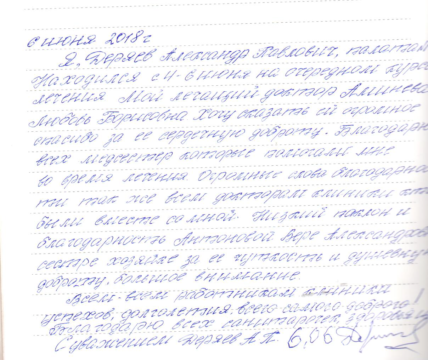 6 июня 2018 г
Я, Деряев Александр Павлович, палата
Находился с 4-6 июня на очередном курсе
лечения Мой лечащий доктор Алиева
Любовь Борисовна Хочу сказать ей огромное
спасибо за ее сердечную доброту. Благодарю
всех медсестер которые помогали мне
во время лечения Огромные слова благодарнос
ти так же всем докторам клиники кто
были вместе со мной. Низкий поклон и
благодарность Антоновой Вере Александров
сестре хозяйке за ее чуткость и душевную
доброту, большое внимание
Всем-всем работникам клиники
успехов, долголетия, всего самого доброго!
Благодарю всех санитарочек, здоровья
С уважением Деряев А.П. 6,06